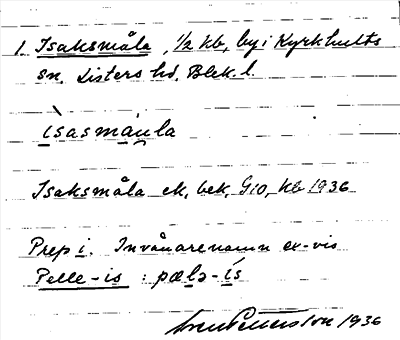 1 Isaksmåla, 1/2 kb, by i Kyrkhults
sn, Listers hd, Blek. l.
ìsasmáu̯la
Isaksmåla ek, bek, G10, kb 1936
Prep i. Invånarenamn ex-vis
Pelle-is : pælə-ís
Sven Petterson 1936